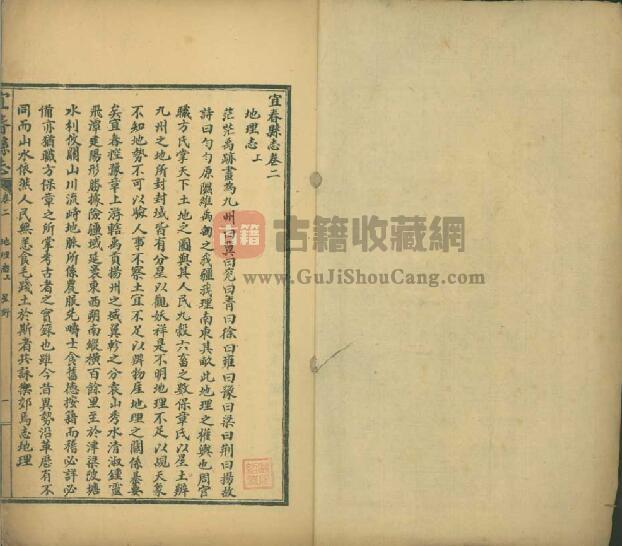 宜春縣志卷二
地理志上
茫茫禹跡畫為九州曰冀曰兖曰青曰徐曰雍曰豫曰梁曰荆曰揚故
詩曰勻勻原隰維禹甸之我疆我理南東其畝此地理之權輿也周官
職方氏掌天下土地之圖與其人民九穀六畜之數保章氏以星土辨
九州之地所封封域皆有分星以觀妖祥是不明地理不足以觇天象
不知地勢不可以驗人事不察土宜不足以辨物産地理之關係綦要
矣宜春控豫章上游轄禹貢揚州之域翼軫之分袁山秀水清淑鍾靈
飛漳建陽形勝據險疆域延袤東西朔南縱横百餘里至於津梁陂塘
水利攸關山川流峙地脈所係農服先疇士食舊德按籍而稽必詳必
備亦猶職方保章之所掌考古者之實錄也雖今昔異勢沿革歷有不
同而山水依然人民無恙食毛踐土於斯者共詠樂郊焉志地理
宜春縣志
卷二
地理志上
星野
一
古籍 古籍收藏网
www.GuJiShouCang.com